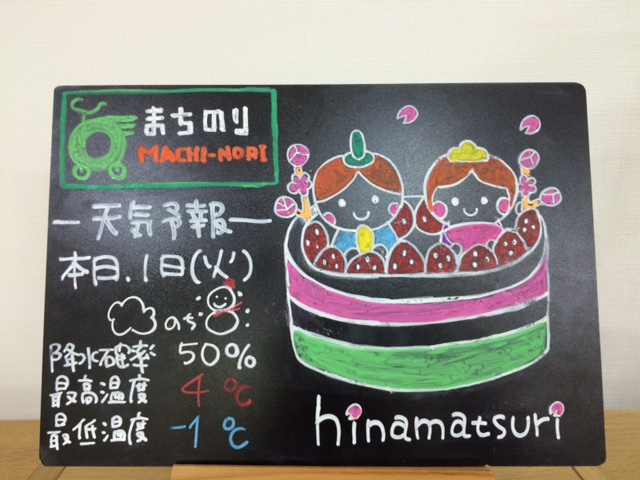 まちのり
MACHI-NORI
ー天気予報ー
本日.1日(火)
のち
降水確率 50%
最高温度 4℃
最低温度 -1℃
hinamatsuri